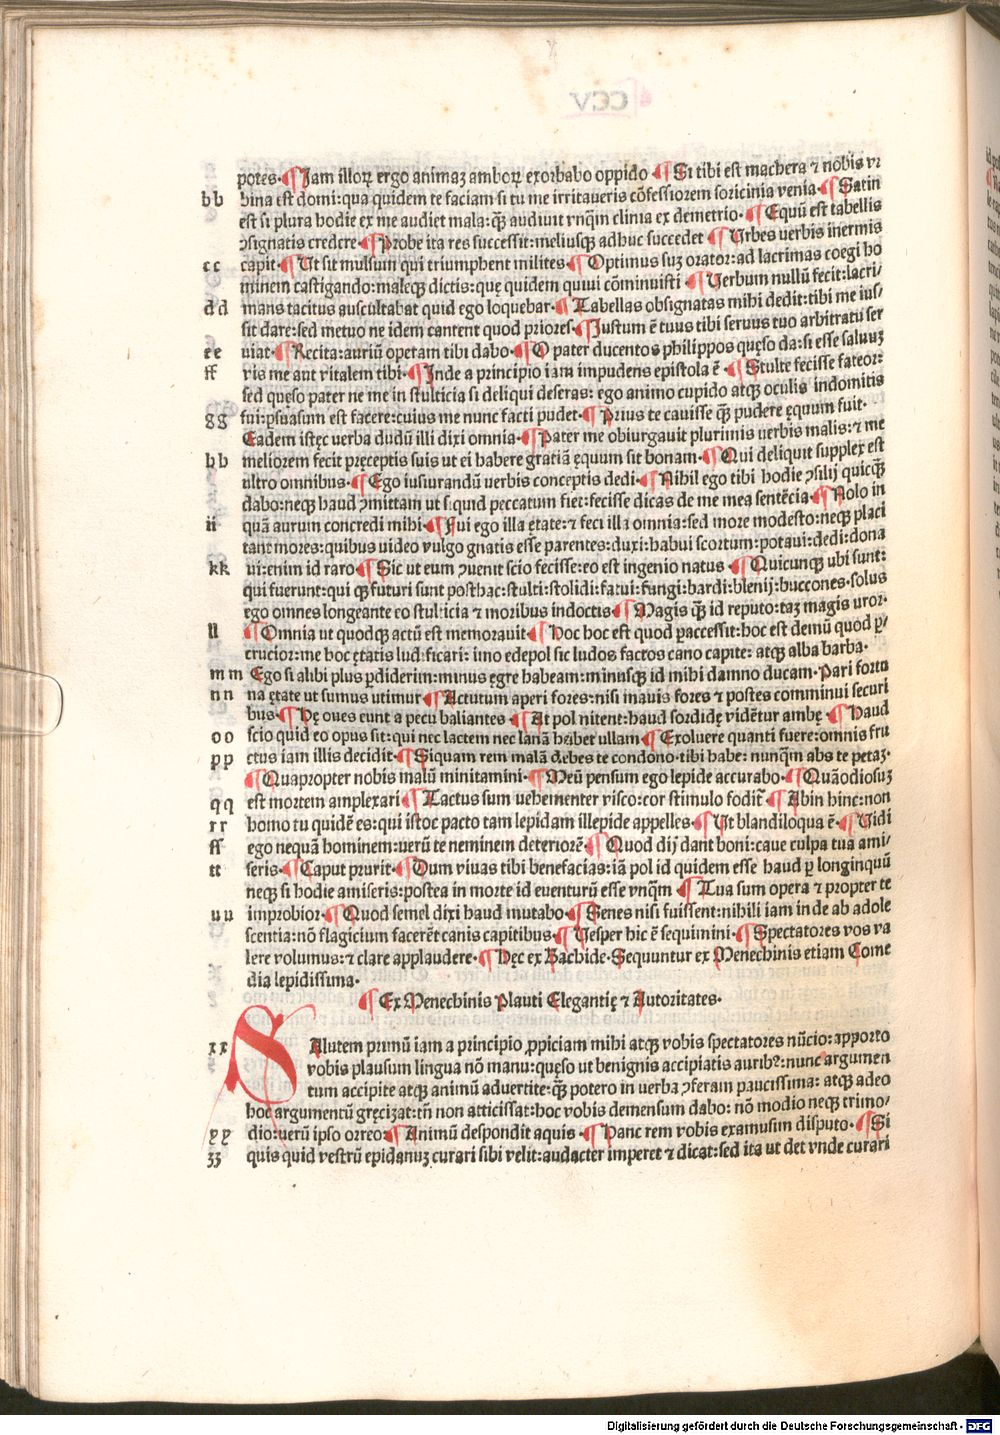 potes·¶Jam illoꝝ ergo animaʒ amboꝝ exorbabo oppido ¶Si tibi est machera ⁊ nobis vr
bb bina est domi:qua quidem te faciam si tu me irritaueris cōfessiorem soricinia venia·¶Satin
est si plura hodie ex me audiet mala:qꝫ̄ audiuit vnq̄m clinia ex demetrio·¶Equū est tabellis
ↄsignatis credere·¶Probe ita res successit:meliusqꝫ adhuc succedet ¶Urbes verbis inermis
cc capit·¶Ut sit mulsum qui triumphent milites·¶Optimus suʒ orator:ad lacrimas coegi ho
minem castigando:maleqꝫ dictis:quę quidem quiui cōminuisti ¶Verbum nullū fecit:lacri/
dd mans tacitus auscultabat quid ego loquebar·¶Tabellas obsignatas mihi dedit:tibi me ius/
sit dare:sed metuo ne idem cantent quod priores·¶Justum ē tuus tibi seruus tuo arbitratu ser
ee uiat·¶Recita:auriū operam tibi dabo·¶O pater ducentos philippos quęso da:si esse saluuʒ
ff vis me aut vitalem tibi·¶Inde a principio iam impudens epistola ē ·¶Stulte fecisse fateor:
sed quęso pater ne me in stulticia si deliqui deseras: ego animo cupido atqꝫ oculis indomitis
gg fui:ꝑsuasum est facere:cuius me nunc facti pudet·¶Prius te cauisse qꝫ̄ pudere ęquum fuit·
Eadem istęc verba dudū illi dixi omnia·¶Pater me obiurgauit plurimis verbis malis:⁊ me
hh meliorem fecit pręceptis suis ut ei habere gratiā ęquum sit bonam·¶Qui deliquit supplex est
ultro omnibus·¶Ego iusiurandū verbis conceptis dedi·¶Nihil ego tibi hodie ↄsilij quicqꝫ̄
dabo:neqꝫ haud ↄmittam ut si quid peccatum fiet:fecisse dicas de me mea sentēcia·¶Nolo in
ii quā aurum concredi mihi·¶Fui ego illa ętate:⁊ feci illa omnia:sed more modesto:neqꝫ placi
tant mores:quibus uideo vulgo gnatis esse parentes:duxi:habui scortum:potaui:dedi:dona
kk ui:enim id raro·¶Sic ut eum ↄuenit scio fecisse:eo est ingenio natus ·¶Quicunqꝫ ubi sunt:
qui fuerunt:qui qꝫ futuri sunt posthac:stulti:stolidi:fatui:fungi:bardi:blenij:buccones·solus
ego omnes longeante eo stulticia ⁊ moribus indoctis·¶Magis qꝫ̄ id reputo:taʒ magis vror·
ll ¶Omnia ut quodqꝫ actū est memorauit·¶Hoc hoc est quod ꝑaccessit:hoc est demū quod ꝑ/
crucior:me hoc ętatis ludificari: imo edepol sic ludos factos cano capite: atqꝫ alba barba·
mm Ego si alibi plus ꝑdiderim:minus ęgre habeam:minusqꝫ id mihi damno ducam·Pari fortu
nn na ętate ut sumus utimur·¶Actutum aperi fores:nisi mauis fores ⁊ postes comminui securi
bus·¶Hę oues eunt a pecu baliantes ·¶At pol nitent:haud sordidę vidētur ambę ·¶Haud
oo scio quid eo opus sit:qui nec lactem nec lanā habet ullam·¶Exoluere quanti fuere:omnis fru
pp ctus iam illis decidit·¶Siquam rem malā debes te condono·tibi habe: nunqm̄ abs te petaʒ·
¶Quapropter nobis malū minitamini·¶Meū pensum ego lepide accurabo·¶Quāodiosuʒ
qq est mortem amplexari·¶Tactus sum uehementer visco:cor stimulo fodit̄·¶Abin hinc:non
rr homo tu quidē es:qui istoc pacto tam lepidam illepide appelles·¶Ut blandiloqua ē·¶Vidi
ſſ ego nequā hominem:uerū te neminem deteriorē·¶Quod dij dant boni:caue culpa tua ami/
tt seris·¶Caput prurit·¶Dum viuas tibi benefacias:iā pol id quidem esse haud ꝑ longinquū
neqꝫ si hodie amiseris:postea in morte id euenturū esse vnq̄m ¶Tua sum opera ⁊ propter te
uu improbior·¶Quod semel dixi haud mutabo·¶Senes nisi fuissent:nihili iam inde ab adole
scentia:nō flagicium facerēt canis capitibus·¶Vesper hic ē sequimini·¶Spectatores vos va
lere volumus:⁊ clare applaudere·¶Hęc ex Bachide·Sequuntur ex Menechinis etiam Come
dia lepidissima·
¶Ex Menechinis Plauti Elegantię ⁊ Autoritates·
xx SAlutem primū iam a principio ꝓpiciam mihi atqꝫ vobis spectatores nūcio: apporto
vobis plausum lingua nō manu:quęso ut benignis accipiatis auribꝰ:nunc argumen
tum accipite atqꝫ animū advertite:qꝫ̄ potero in verba ↄferam paucissima: atqꝫ adeo
hoc argumentū gręcizat:tn̄ non atticissat:hoc vobis demensum dabo: nō modio neqꝫ trimo/
yy dio:uerū ipso orreo:¶Animū despondit aquis ·¶Hanc rem vobis examusim disputo·¶Si
ʒʒ quis quid vestrū epidanuʒ curari sibi velit:audacter imperet ⁊ dicat:sed ita ut det vnde curari
Digitalisierung gefördert durch die Deutsche Forschungsgemeinschaft - DFG